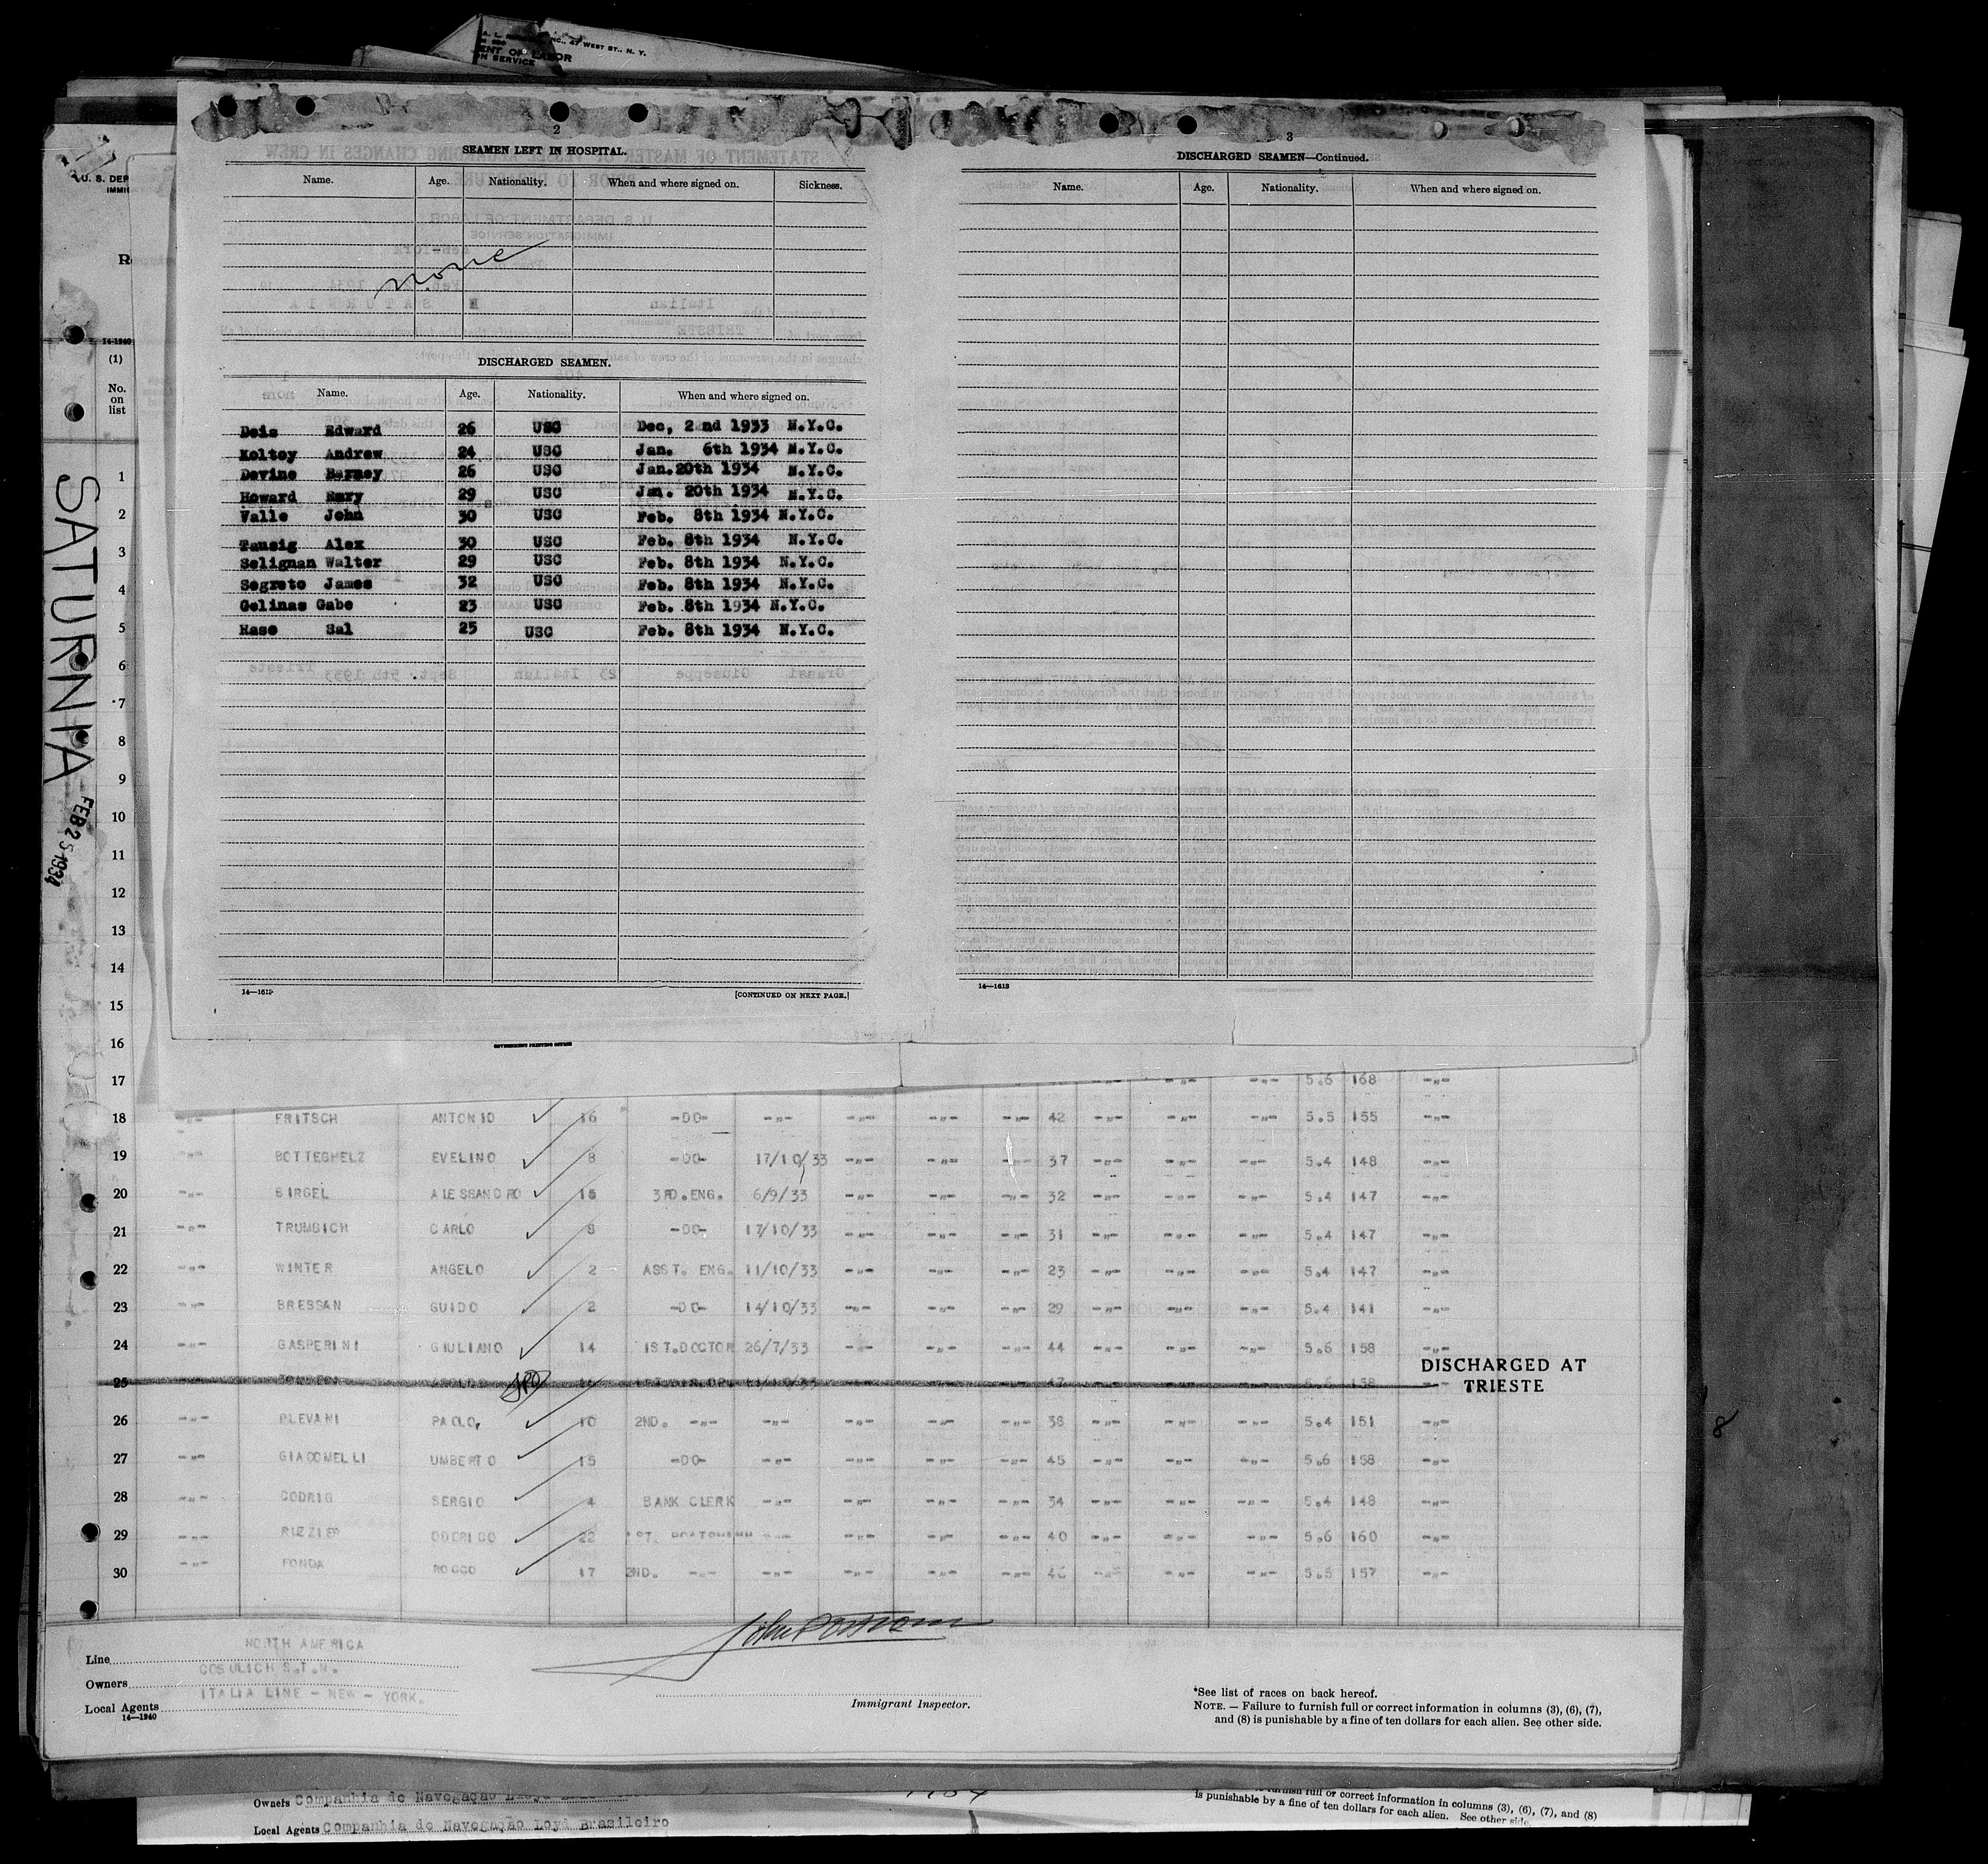 A. L. INC., 47 WEST ST., N. Y.
ENT OF LABOR
ON SERVICE
U. S. DEP
IMMIG
R
14-1240
(1)
No.
on
list
SATURNIA
FEB 25 1934
2
SEAMEN LEFT IN HOSPITAL.
Name. Age. Nationality. When and where signed on. Sickness.
none
DISCHARGED SEAMEN.
Name. Age. Nationality. When and where signed on.
Deis Edward 26 USC Dec, 2nd 1933 N.Y.C.
Koltoy Andrew 24 USC Jan. 6th 1934 N.Y.C.
Devine Barney 26 USC Jan.20th 1934 N.Y.C.
Howard 29 USC Jan. 20th 1934 N.Y.C.
Valle John 30 USC Feb. 8th 1934 N.Y.C.
Tansig Alex 30 USC Feb. 8th 1934 N.Y.C.
Selignan Walter 29 USC Feb. 8th 1934 N.Y.C.
Segreto James 32 USC Feb. 8th 1934 N.Y.C.
Gelinas Gabe 23 USC Feb. 8th 1934 N.Y.C.
Rase Sal 25 USC Feb. 8th 1934 N.Y.C.
14—1613
[CONTINUED ON NEXT PAGE.]
GOVERNMENT PRINTING OFFICE
3
DISCHARGED SEAMEN—Continued.
Name. Age. Nationality. When and where signed on.
14—1613
1
2
3
4
5
6
7
8
9
10
11
12
13
14
15
16
17 -"- -"- -"- 5.6 168 -"-
18 -"- FRITSCH ANTONIO 16 -DO- -"- -"- -"- -"- 42 -"- -"- -"- 5.5 155 -"-
19 -"- BOTTEGHELZ EVELINO 8 -DO- 17/10/33 -"- -"- -"- 37 -"- -"- -"- 5.4 148 -"-
20 -"- BIRGEL ALESSANDRO 15 3RD.ENG. 6/9/33 -"- -"- -"- 32 -"- -"- -"- 5.4 147 -"-
21 -"- TRUMBICH CARLO 8 -DO- 17/10/33 -"- -"- -"- 31 -"- -"- -"- 5.4 147 -"-
22 -"- WINTER ANGELO 2 ASST. ENG. 11/10/33 -"- -"- -"- 23 -"- -"- -"- 5.4 147 -"-
23 -"- BRESSAN GUIDO 2 -DO- 14/10/33 -"- -"- -"- 29 -"- -"- -"- 5.4 141 -"-
24 -"- GASPERINI GIULIANO 14 1ST.DOCTOR 26/7/33 -"- -"- -"- 44 -"- -"- -"- 5.6 158 -"-
25 DISCHARGED AT
TRIESTE
26 -"- PLEVANI PAOLO, 10 2ND. -"- -"- -"- -"- -"- 38 -"- -"- -"- 5.4 151 -"-
27 -"- GIACOMELLI UMBERTO 15 -DO- -"- -"- -"- -"- 45 -"- -"- -"- 5.6 158 -"-
28 -"- CODRIG SERGIO 4 BANK CLERK -"- -"- -"- -"- 34 -"- -"- -"- 5.4 148 -"-
29 -"- RIZZIER ODORICO 22 1ST. BOATSMANN -"- -"- -"- -"- 40 -"- -"- -"- 5.6 160 -"-
30 -"- FONDA ROCCO 17 2ND. -"- -"- -"- -"- -"- -"- -"- -"- 5.5 157 -"-
Line NORTH AMERICA
Owners COSULICH S.T.N.
Local Agents ITALIA LINE - NEW - YORK.
14—1240
Immigrant Inspector.
*See list of races on back hereof.
NOTE. — Failure to furnish full or correct information in columns (3), (6), (7),
and (8) is punishable by a fine of ten dollars for each alien. See other side.
8
Owners Companhia de Navegação
Local Agents Companhia de Navegação Loyd Brasileiro
to furnish full or correct information in columns (3), (6), (7), and (8)
is punishable by a fine of ten dollars for each alien. See other side.